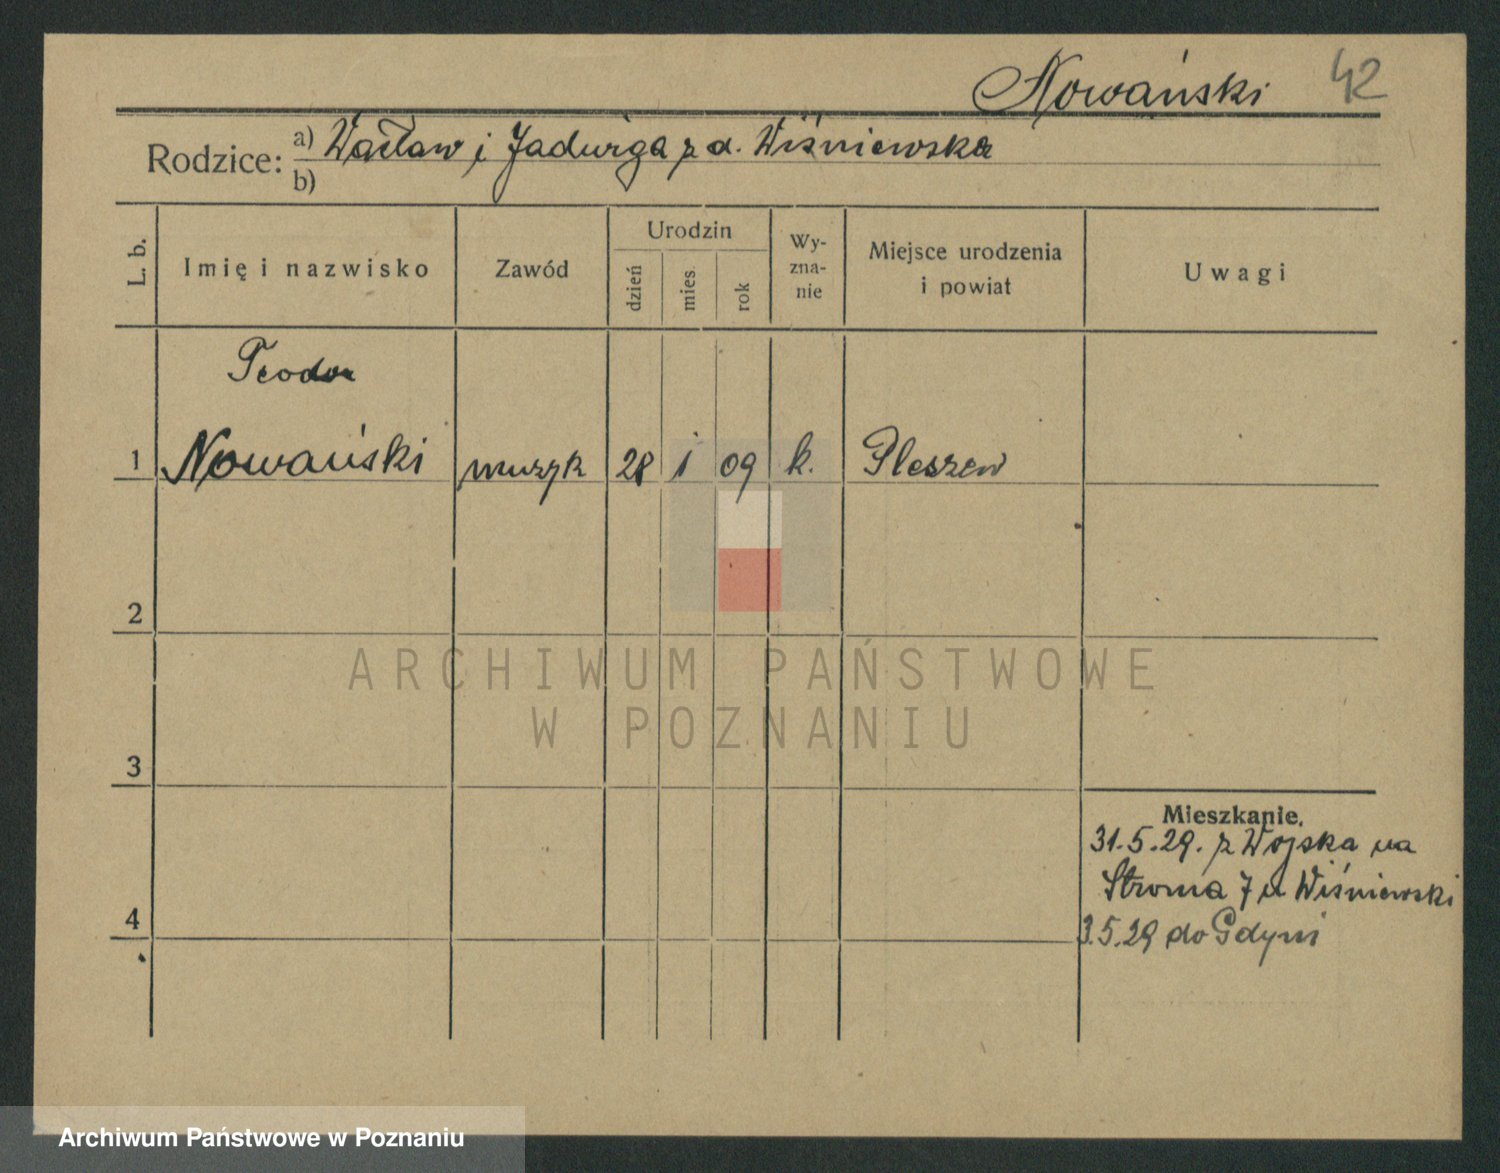 Nowański 42
Rodzice: a) Wacław i Jadwiga z d. Wiśniewska
b)
L. b.
Imię i nazwisko
Zawód
Urodzin
dzień
mies
rok
Wy-
zna-
nie
Miejsce urodzenia
i powiat
Uwagi
Teodor
1 Nowański muzyk 28 i 09 k. Pleszew
2
3
4
Mieszkanie.
31.5.29. z Wojska na
Stroma 7 u Wiśniewski
3.5.29 do Gdyni
ARCHIWUM PAŃSTWOWE
W POZNANIU
Archiwum Państwowe w Poznaniu